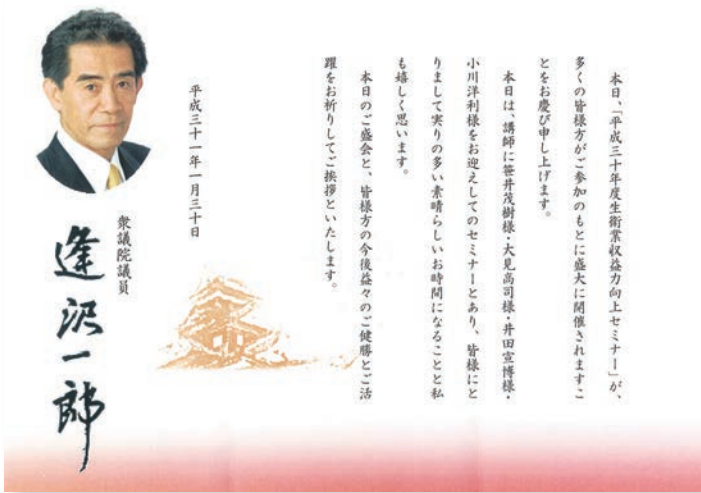 本日、「平成三十年度生衛業収益力向上セミナー」が、
多くの皆様方がご参加のもとに盛大に開催されますこ
とをお慶び申し上げます。
本日は、講師に笹井茂樹様・大見高司様・井田宣博様・
小川洋利様をお迎えしてのセミナーとあり、皆様にと
りまして実りの多い素晴らしいお時間になることと私
も嬉しく思います。
本日のご盛会と、皆様方の今後益々のご健勝とご活
躍をお祈りしてご挨拶といたします。
平成三十一年一月三十日
衆議院議員
逢沢一郎